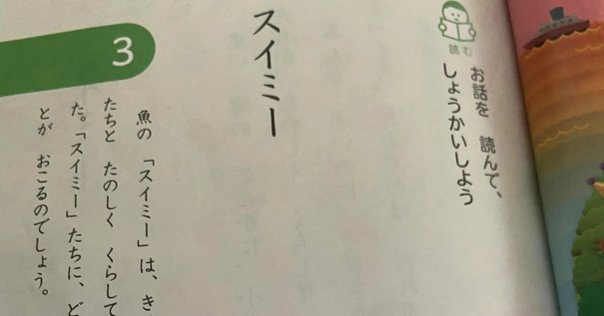 読む
お話を　読んで、
しょうかいしよう
スイミー
3
魚の　「スイミー」は、き
たちと　たのしく　くらして
た。「スイミー」たちに、ど
とが　おこるのでしょう。